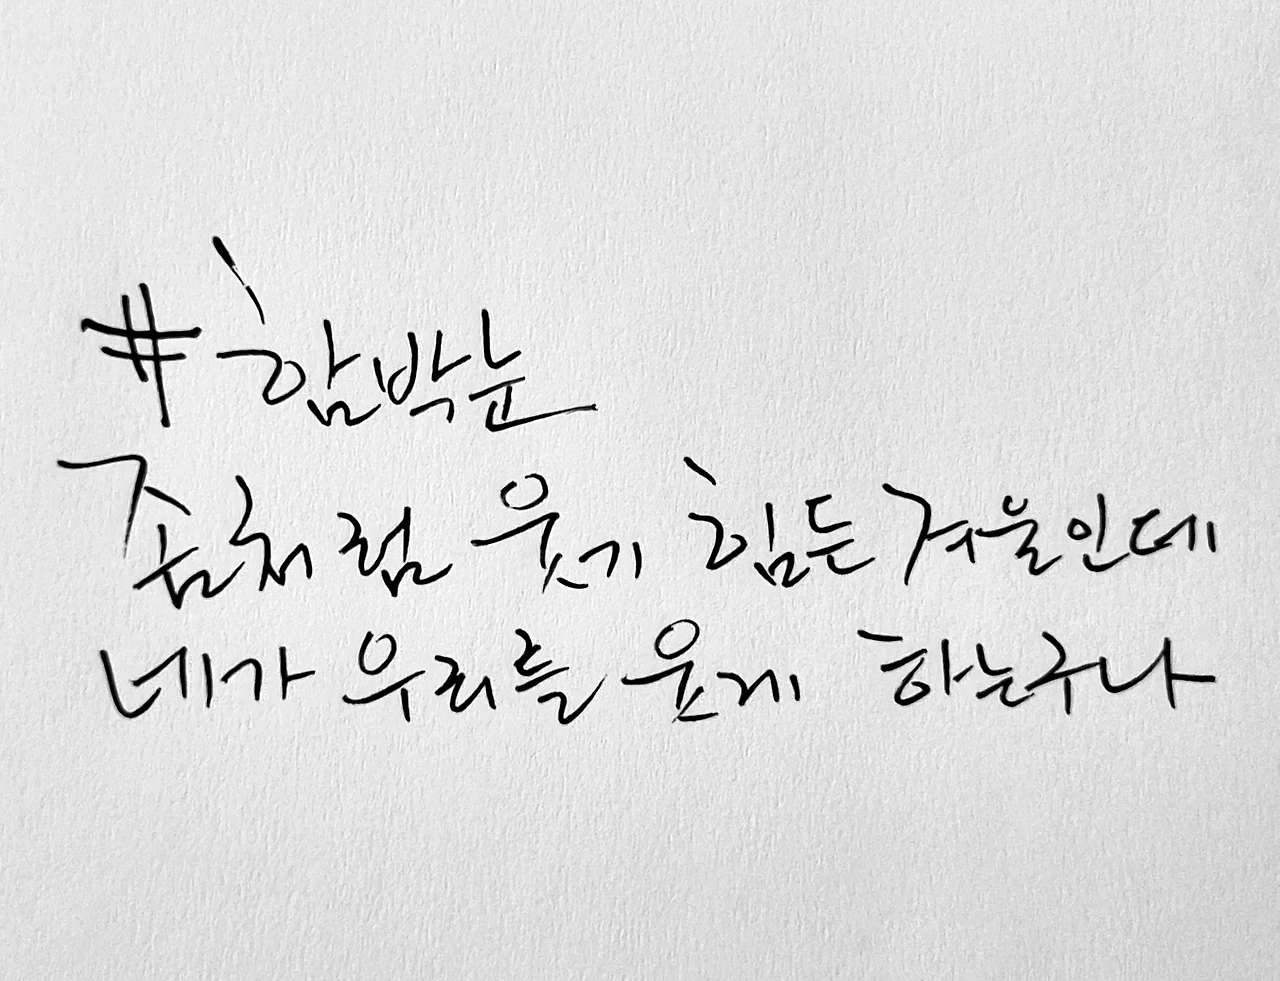 #함박눈
좀처럼 웃기 힘든 겨울인데
네가 우리를 웃게 하는구나